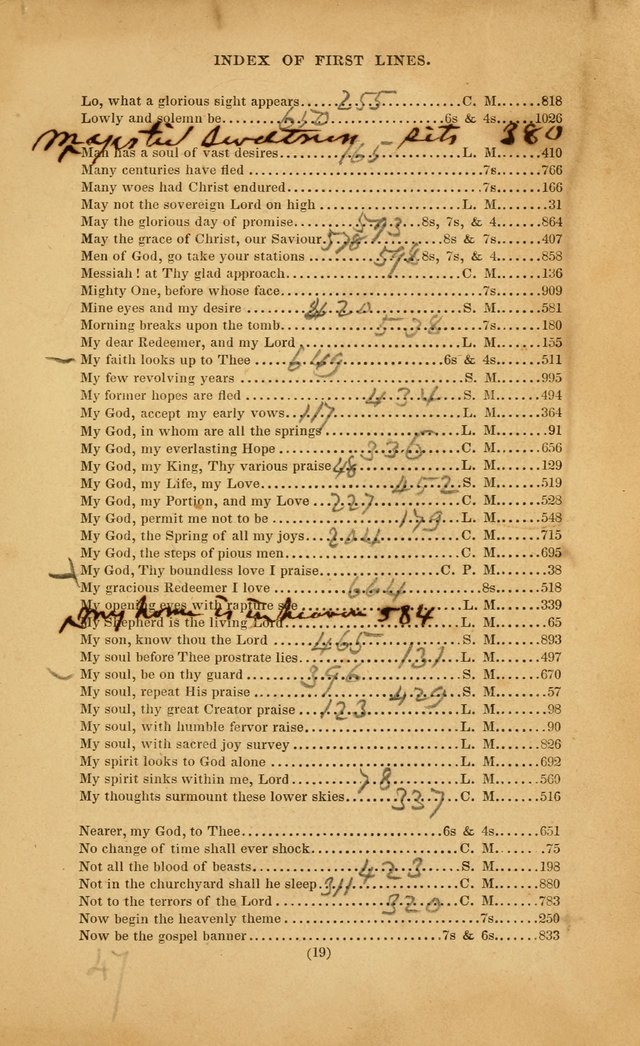 INDEX OF FIRST LINES.
Lo, what a glorious sight appears...255...C. M.......818
Lowly and solemn be...650...6s & 4s.....1026
Majestic Sweetness sits 380
Man has a soul of vast desires...165...L. M.......410
Many centuries have fled...7s.......766
Many woes had Christ endured...7s.......166
May not the sovereign Lord on high...L. M.......31
May the glorious day of promise...593...8s, 7s, & 4.....864
May the grace of Christ, our Saviour...578...8s & 7s.......407
Men of God, go take your stations...598...8s, 7s, & 4.....858
Messiah! at Thy glad approach...C. M.......136
Mighty One, before whose face...7s.......909
Mine eyes and my desire...420...S. M.......581
Morning breaks upon the tomb...538...7s.......180
My dear Redeemer, and my Lord...L. M.......155
My faith looks up to Thee...649...6s & 4s.......511
My few revolving years...S. M.......995
My former hopes are fled...434...S. M.......494
My God, accept my early vows...117...L. M.......364
My God, in whom are all the springs...L. M.......91
My God, my everlasting Hope...336...C. M.......656
My God, my King, Thy various praise...48...L. M.......129
My God, my Life, my Love...452...S. M.......519
My God, my Portion, and my Love...227...C. M.......528
My God, permit me not to be...179...L. M.......548
My God, the Spring of all my joys...244...C. M.......715
My God, the steps of pious men...C. M.......695
My God, Thy boundless love I praise...C. P. M.......38
My gracious Redeemer I love...664...8s.......518
My opening eyes with rapture see...L. M.......339
My home is in heaven 584
My Shepherd is the living Lord...L. M.......65
My son, know thou the Lord...465...S. M.......893
My soul before Thee prostrate lies...131...L. M.......497
My soul, be on thy guard...396...S. M.......670
My soul, repeat His praise...429...S. M.......57
My soul, thy great Creator praise...123...L. M.......98
My soul, with humble fervor raise...L. M.......90
My soul, with sacred joy survey...L. M.......826
My spirit looks to God alone...L. M.......692
My spirit sinks within me, Lord...78...L. M.......560
My thoughts surmount these lower skies...337...C. M.......516
Nearer, my God, to Thee...6s & 4s.......651
No change of time shall ever shock...C. M.......75
Not all the blood of beasts...423...S. M.......198
Not in the churchyard shall he sleep...311...C. M.......880
Not to the terrors of the Lord...320...C. M.......783
Now begin the heavenly theme...7s.......250
Now be the gospel banner...7s & 6s.......833
(19)
47